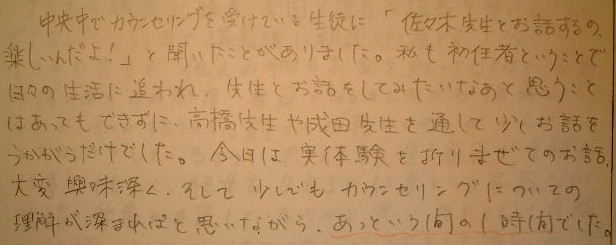 中央中でカウンセリングを受けている生徒に「佐々木先生とお話するの、
楽しいんだよ!」と聞いたことがありました。私も初任者ということで
日々の生活に追われ、先生とお話をしてみたいなあと思うこと
はあってもできずに、高橋先生や成田先生を通して少しお話を
うかがうだけでした。今日は実体験を折りまぜてのお話、
大変興味深く、そして少しでもカウンセリングについての
理解が深まればと思いながら、あっという間の1時間でした。